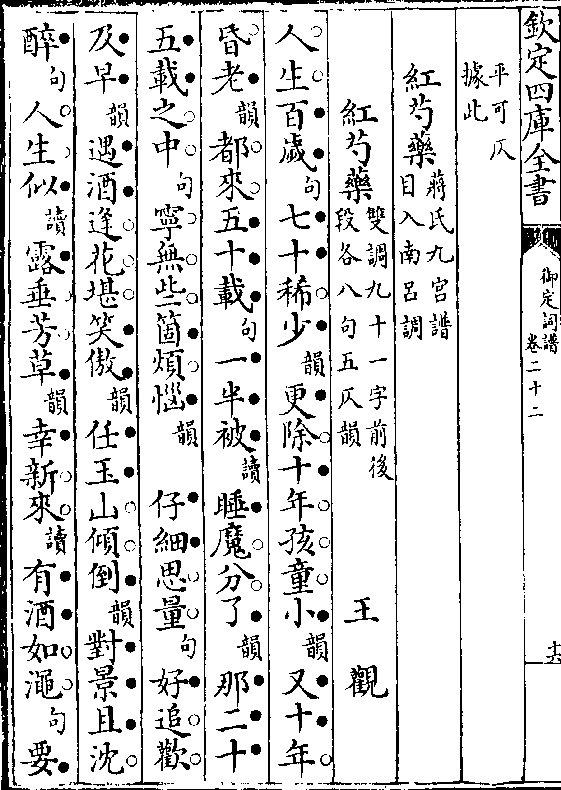 欽定四庫全書
御定詞譜
卷二十二
十六
平可仄
據此
紅芍藥蔣氏九宮譜
目入南呂調
紅芍藥雙調九十一字前後
段各八句五仄韻
王觀
人生百歲句七十稀少韻更除十年孩童小韻又十年
昏老韻都來五十載句一半被讀睡魔分了韻那二十
五載之中句寧無些箇煩惱韻 仔細思量句好追歡
及早韻遇酒逢花堪笑傲韻任玉山傾倒韻對景且沈
醉句人生似讀露垂芳草韻幸新來讀有酒如澠句要